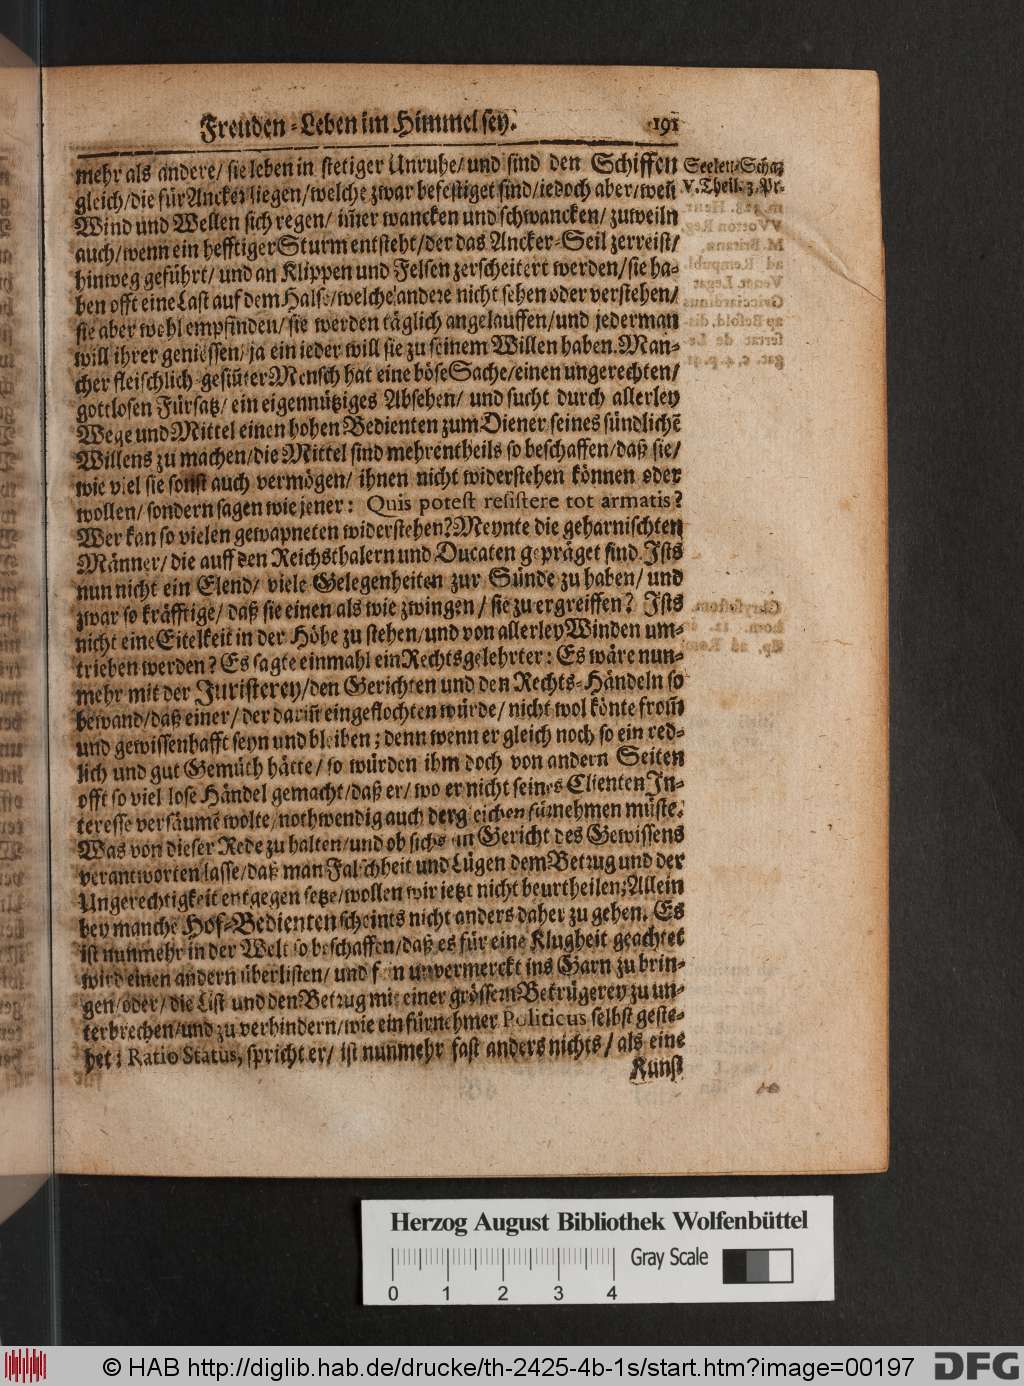 Freuden-Leben im Himmel sey. 191
mehr als andere/ sie leben in stetiger Unruhe/ und sind den Schiffen
gleich/ die für Ancker liegen/ welche zwar befestiget sind/ iedoch aber/ weñ
Wind und Wellen sich regen/ im̃er wancken und schwancken/ zuweiln
auch/ wenn ein hefftiger Sturm entsteht/ der das Ancker-Seil zerreist/
hinweg geführt/ und an Klippen und Felsen zerscheitert werden/ sie ha-
ben offt eine Last auf dem Halse/ welche andere nicht sehen oder verstehen/
sie aber wohl empfinden/ sie werden täglich angelauffen/ und jederman
will ihrer geniessen/ ja ein ieder will sie zu seinem Willen haben. Man-
cher fleischlich-gesiñter Mensch hat eine böse Sache/ einen ungerechten/
gottlosen Fürsatz/ ein eigennütziges Absehen/ und sucht durch allerley
Wege und Mittel einen hohen Bedienten zum Diener seines sündlichẽ
Willens zu machen/ die Mittel sind mehrentheils so beschaffen/ daß sie/
wie viel sie sonst auch vermögen/ ihnen nicht widerstehen können oder
wollen/ sondern sagen wie jener: Quis potest resistere tot armatis?
Wer kan so vielen gewapneten widerstehen? Meynte die geharnischten
Männer/ die auff den Reichsthalern und Ducaten gepräget sind. Ists
nun nicht ein Elend/ viele Gelegenheiten zur Sünde zu haben/ und
zwar so kräfftige/ daß sie einen als wie zwingen/ sie zu ergreiffen? Ists
nicht eine Eitelkeit in der Höhe zu stehen/ und von allerley Winden um-
trieben werden? Es sagte einmahl ein Rechtsgelehrter: Es wäre nun-
mehr mit der Juristerey/ den Gerichten und den Rechts-Händeln so
bewand/ daß einer/ der dariñ eingeflochten würde/ nicht wol könte from̃
und gewissenhafft seyn und bleiben; denn wenn er gleich noch so ein red-
lich und gut Gemüth hätte/ so würden ihm doch von andern Seiten
offt so viel lose Händel gemacht/ daß er/ wo er nicht seines Clienten In-
teresse versäumẽ wolte/ nothwendig auch dergleichen fürnehmen müste.
Was von dieser Rede zu halten/ und ob sichs im Gericht des Gewissens
verantworten lasse/ daß man Falschheit und Lügen dem Betrug und der
Ungerechtigkeit entgegen setze/ wollen wir jetzt nicht beurtheilen; Allein
bey manchẽ Hof-Bedienten scheints nicht anders daher zu gehen. Es
ist nunmehr in der Welt so beschaffen/ daß es für eine Klugheit geachtet
wird einen andern überlisten/ und fein unvermerckt ins Garn zu brin-
gen/ oder/ die List und den Betrug mit einer grössem Betrügerey zu un-
terbrechen/ und zu verhindern/ wie ein fürnehmer Politicus selbst geste-
het: Ratio Status, spricht er/ ist nunmehr fast anders nichts/ als eine
Kunst
Seelen-Schatz
V. Theil. 3. Pr.
Herzog August Bibliothek Wolfenbüttel
Gray Scale
0 1 2 3 4
© HAB http://diglib.hab.de/drucke/th-2425-4b-1s/start.htm?image=00197
DFG